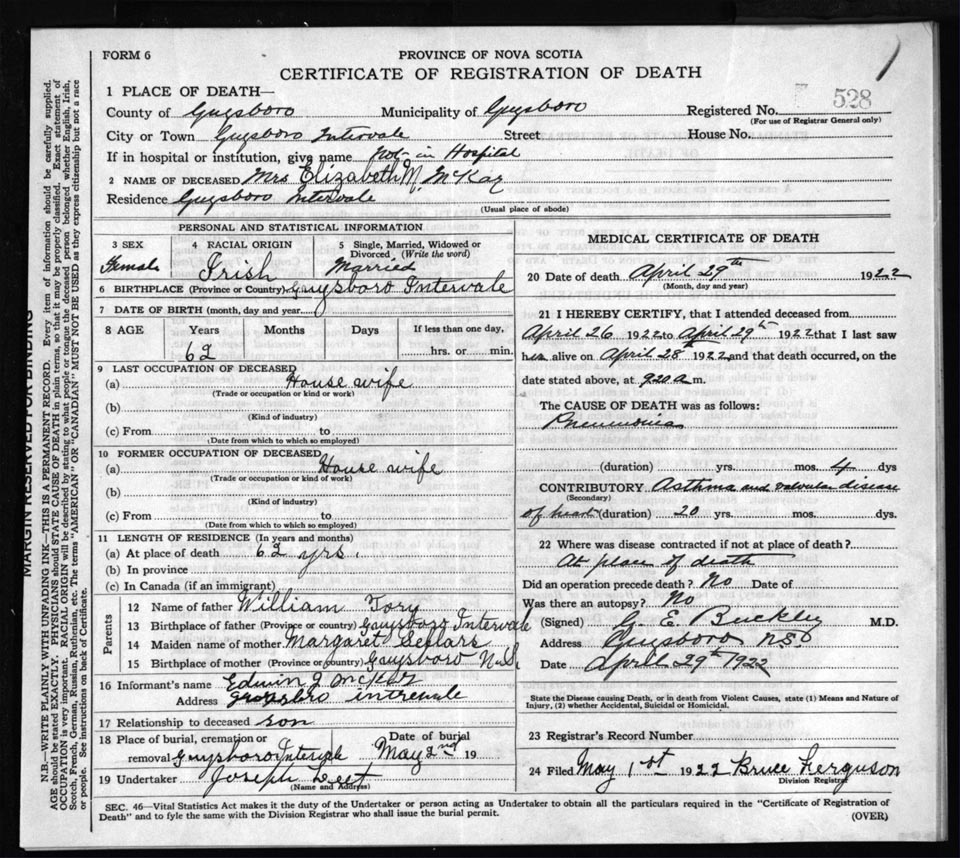 FORM 6
PROVINCE OF NOVA SCOTIA
CERTIFICATE OF REGISTRATION OF DEATH
1 PLACE OF DEATH—
County of Guysboro Municipality of Guysboro Registered No. 528
(For use of Registrar General only)
City or Town Guysboro Intervale Street House No.
If in hospital or institution, give name Not in Hospital
2 NAME OF DECEASED Mrs Elizabeth M. McKay
Residence Guysboro Intervale
(Usual place of abode)
PERSONAL AND STATISTICAL INFORMATION
3 SEX 4 RACIAL ORIGIN 5 Single, Married, Widowed or
Divorced (Write the word)
Female Irish Married
6 BIRTHPLACE (Province or Country) Guysboro Intervale
7 DATE OF BIRTH (month, day and year)
8 AGE Years Months Days If less than one day,
62 hrs. or min.
9 LAST OCCUPATION OF DECEASED
(a) House wife
(Trade or occupation or kind or work)
(b)
(Kind of industry)
(c) From to
(Date from which to which so employed)
10 FORMER OCCUPATION OF DECEASED
(a) House wife
(Trade or occupation of kind of work)
(b)
(Kind of industry)
(c) From to
(Date from which to which so employed)
11 LENGTH OF RESIDENCE (In years and months)
(a) At place of death 62 yrs.
(b) In province
(c) In Canada (if an immigrant)
Parents
12 Name of father William Tory
13 Birthplace of father (Province or country) Guysboro Intervale
14 Maiden name of mother Margaret Sellars
15 Birthplace of mother (Province or country) Guysboro N.S.
16 Informant's name Edwin J McKay
Address Guysboro intervale
17 Relationship to deceased son
18 Place of burial, cremation or Date of burial
removal Guysboro Intervale May 2nd 19
19 Undertaker Joseph
(Name and Address)
MEDICAL CERTIFICATE OF DEATH
20 Date of death April 29th 1922
(Month, day and year)
21 I HEREBY CERTIFY, that I attended deceased from
April 26 1922 to April 29th 1922 that I last saw
her alive on April 28th 1922 and that death occurred, on the
date stated above, at 9.20 a m.
The CAUSE OF DEATH was as follows:
Pneumonia
(duration) yrs. mos. 4 dys
CONTRIBUTORY Asthma and valvular disease
(Secondary)
of heart (duration) 20 yrs. mos. dys.
22 Where was disease contracted if not at place of death?
At place of death
Did an operation precede death? No Date of
Was there an autopsy? No
(Signed) G. E. Buckley M.D.
Address Guysboro N.S.
Date April 29th 1922
State the Disease causing Death, or in death from Violent Causes, state (1) Means and Nature of
Injury, (2) whether Accidental, Suicidal or Homicidal.
23 Registrar's Record Number
24 Filed May 1st 1922 Bruce Ferguson
Division Registrar
SEC. 46—Vital Statistics Act makes it the duty of the Undertaker or person acting as Undertaker to obtain all the particulars required in the "Certificate of Registration of
Death" and to fyle the same with the Division Registrar who shall issue the burial permit.
(OVER)
MARGIN RESERVED FOR BINDING
N.B.—WRITE PLAINLY WITH UNFADING INK—THIS IS A PERMANENT RECORD. Every item of information should be carefully supplied.
AGE should be stated EXACTLY. PHYSICIANS should STATE CAUSE OF DEATH in plain terms, so that it may be properly classified. Exact statement of
OCCUPATION is very important. RACIAL ORIGIN will be described by stating to what people or tongue the deceased person belonged, whether English, Irish,
Scotch, French, German, Russian, Ruthenian, etc. The terms "AMERICAN" OR "CANADIAN" MUST NOT BE USED as they express citizenship but not a race
or people. See instructions on back of Certificate.